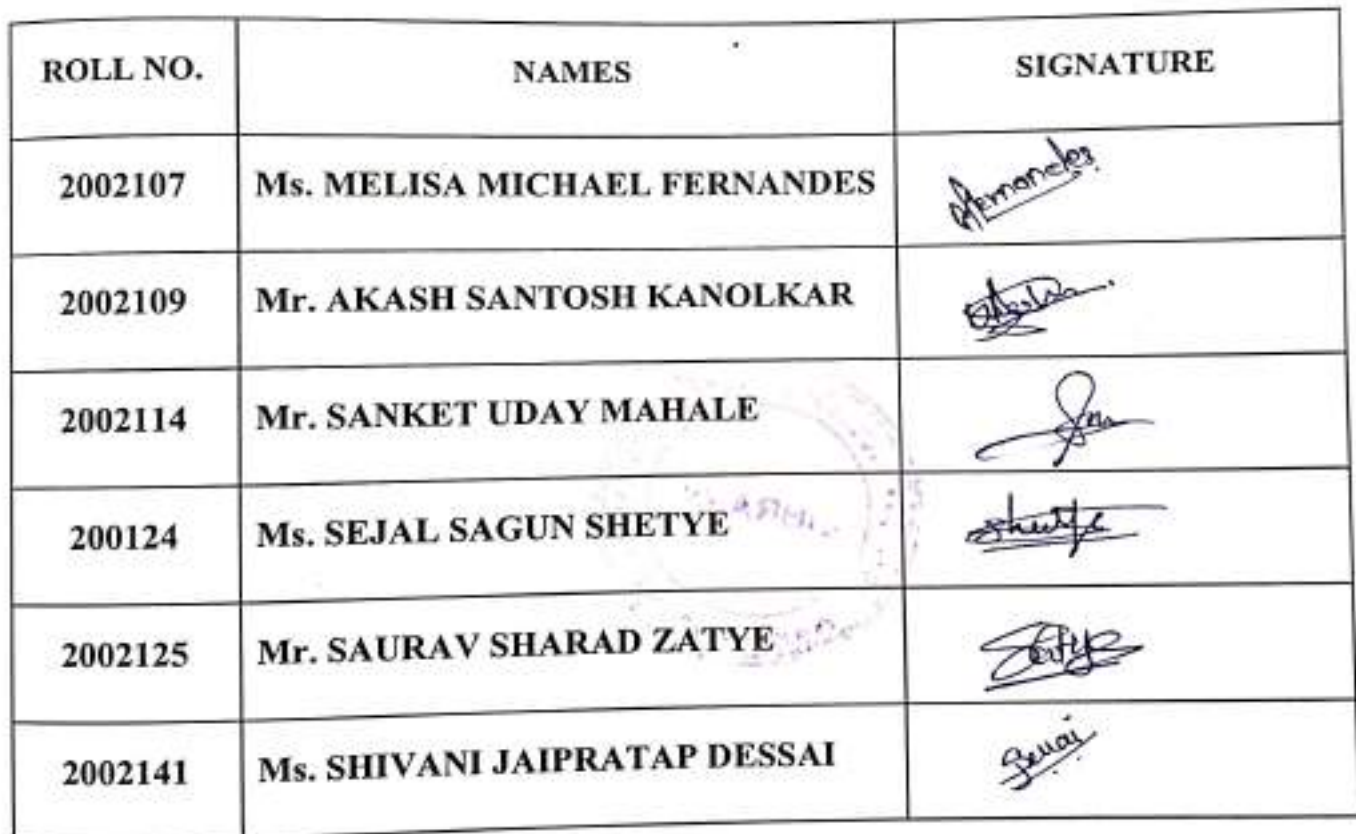 ROLL NO. NAMES SIGNATURE
2002107 Ms. MELISA MICHAEL FERNANDES Fernandes
2002109 Mr. AKASH SANTOSH KANOLKAR
2002114 Mr. SANKET UDAY MAHALE
200124 Ms. SEJAL SAGUN SHETYE Shetye
2002125 Mr. SAURAV SHARAD ZATYE Zatye
2002141 Ms. SHIVANI JAIPRATAP DESSAI